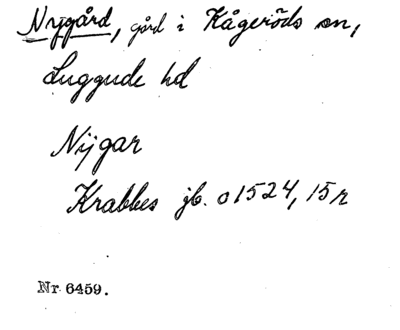 Nygård, gård i Kågeröds sn,
Luggude hd
Nijgar
Krabbes jb. o 1524, 15r
Nr 6459.